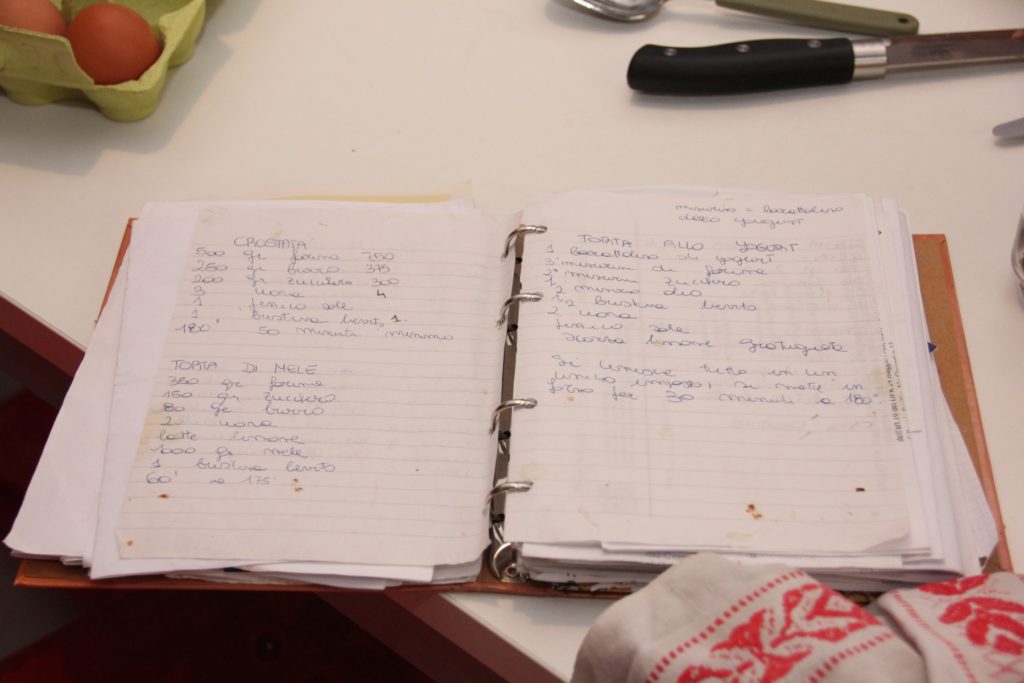 CROSTATA
500 gr farina 750
250 gr burro 375
200 gr zucchero 300
3 uova 4
1 pizzico sale
1 bustina lievito 1
180° 50 minuti minimo
TORTA DI MELE
350 gr farina
150 gr zucchero
80 gr burro
2 uova
latte limone
1000 gr mele
1 bustina lievito
60' a 175°
misurino = barattolino
dello yogurt
TORTA ALLO YOGURT
1 barattolino di yogurt
3 misurini di farina
2 misurini zucchero
1/2 misurino olio
1/2 bustina lievito
2 uova
pizzico sale
scorza limone grattugiata
Si unisce tutto in un
unico impasto, si mette in
forno per 30 minuti a 180°